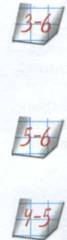 3-6
5-6
4-5